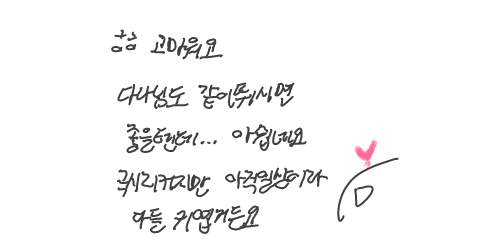 ㅎㅎ 고마워요
다나님도 같이뛰시면
좋을텐데... 아쉽네요
곡시리커지만 아직일상이라
다들 귀엽거든요